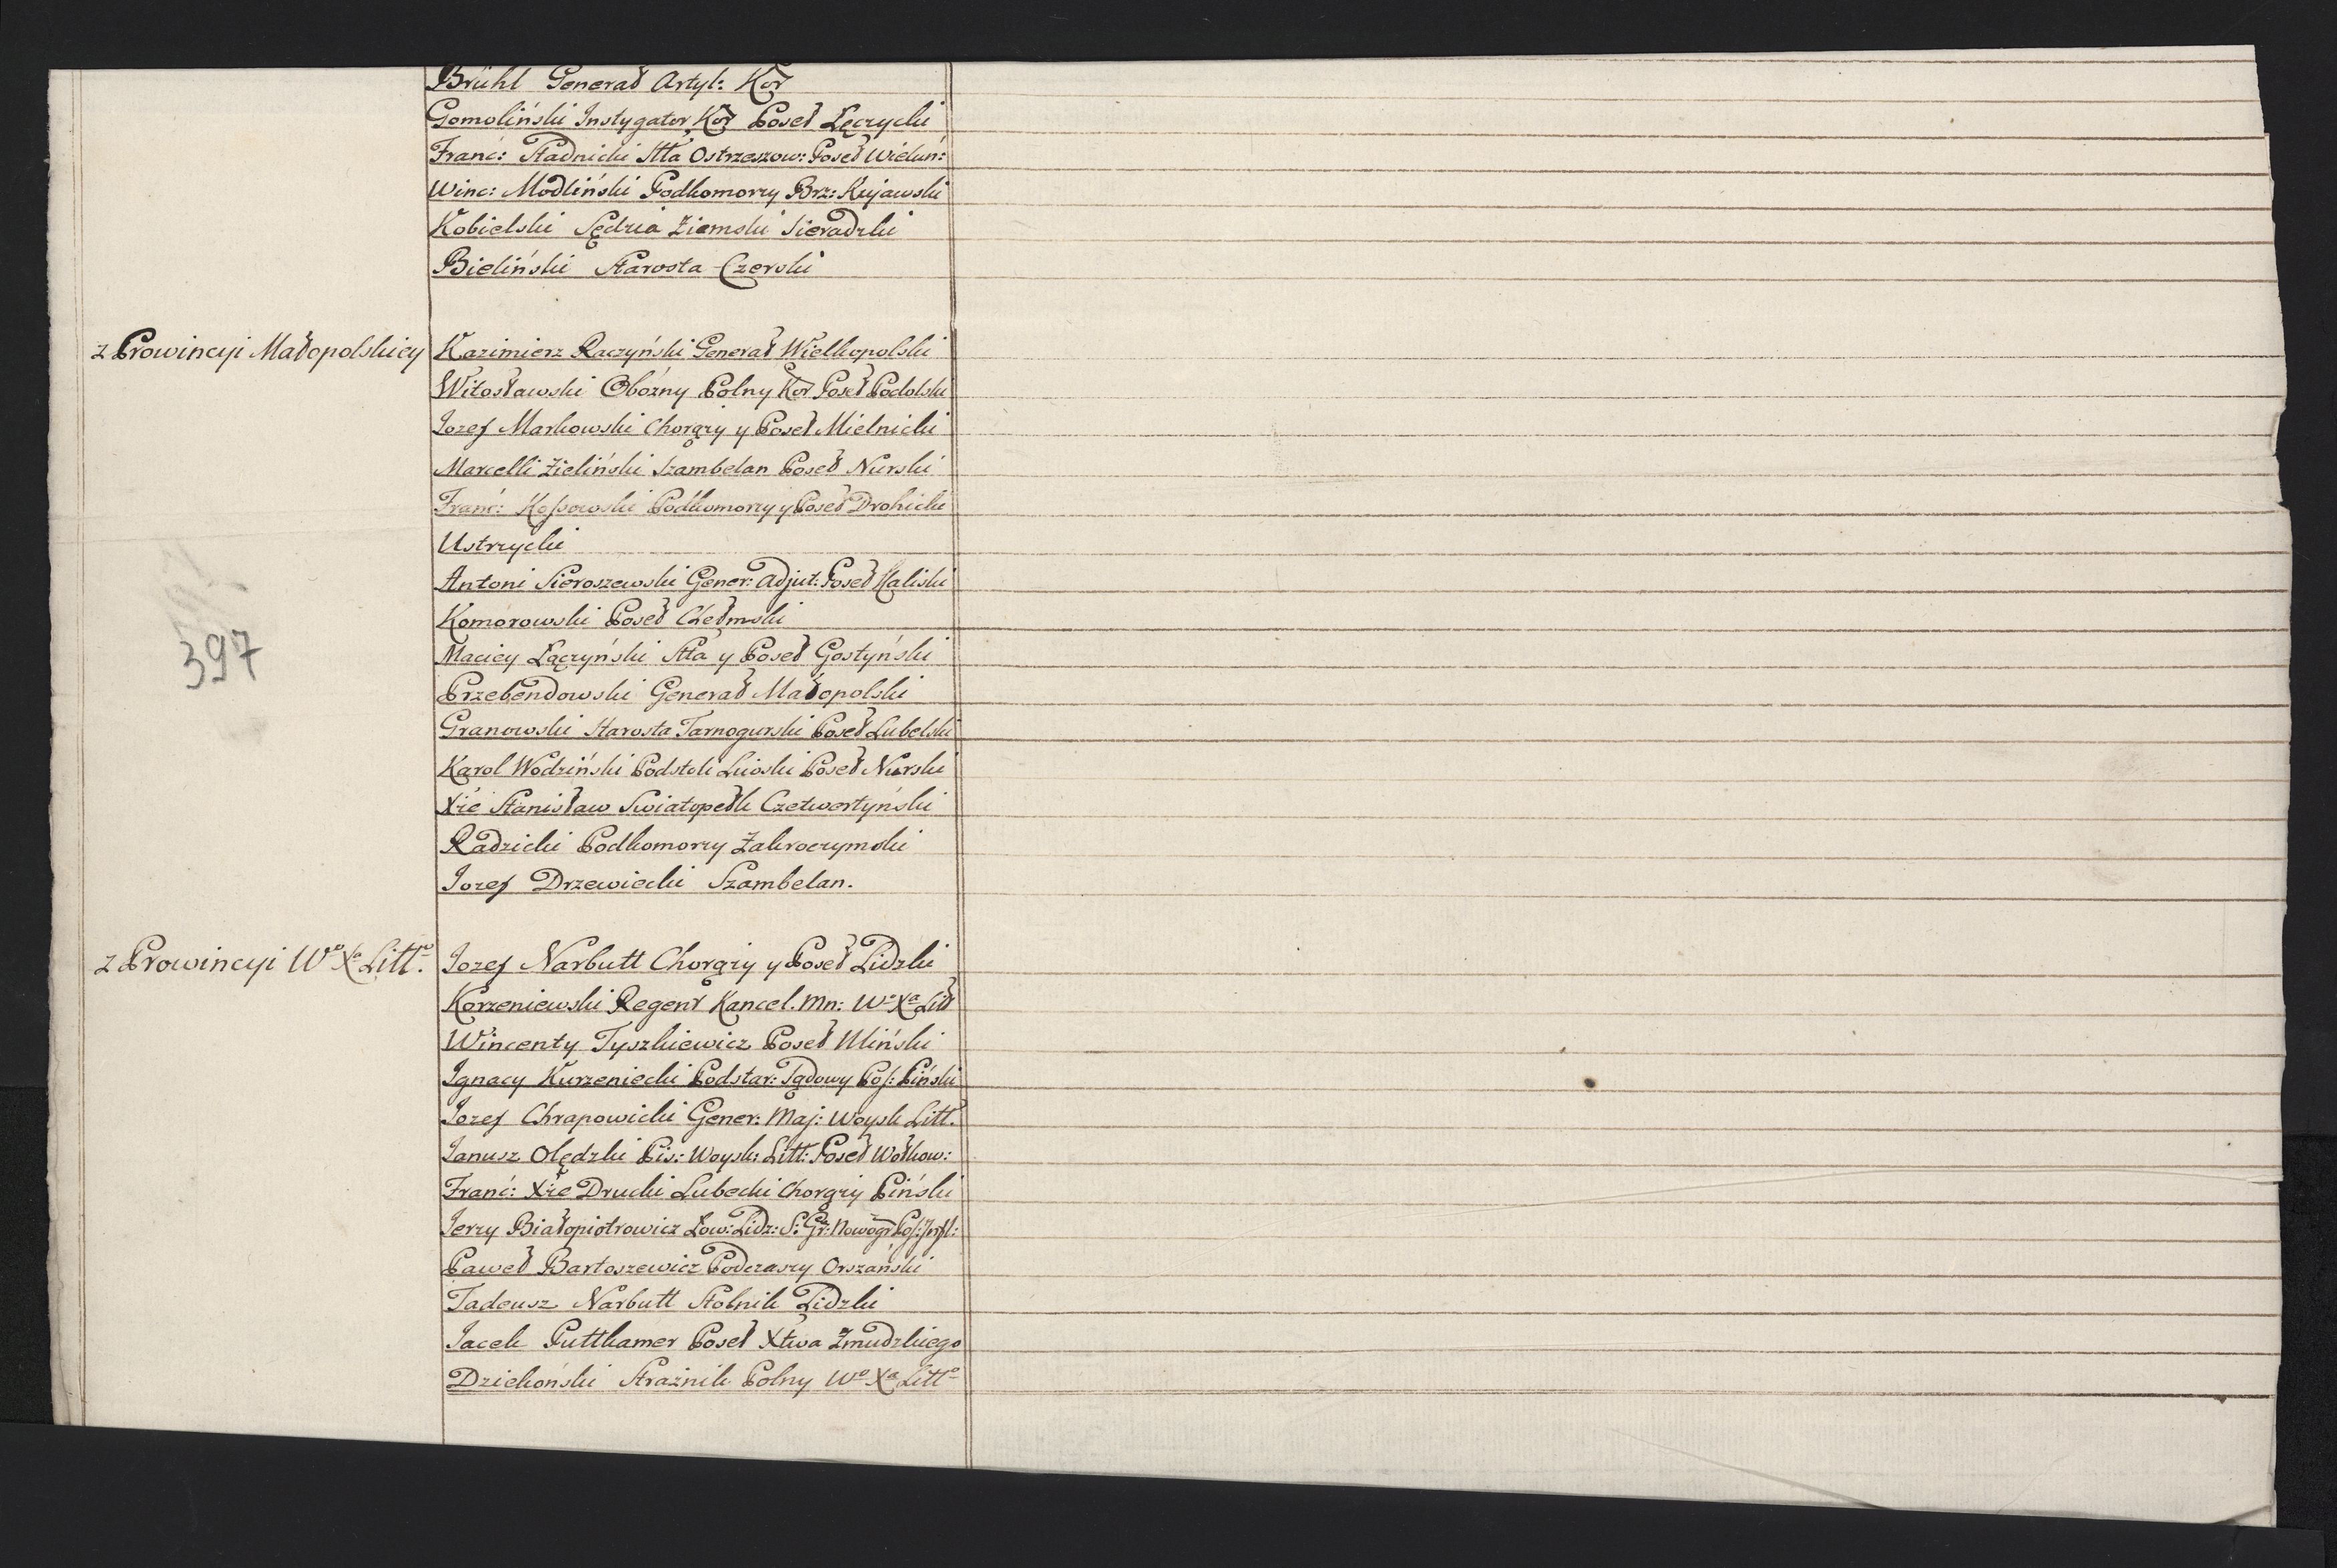 Brühl Generał Artyl: Kor
Gomoliński Instygator Kor Poseł Łęczycki
Franc: Stadnicki Stta Ostrzeszow: Poseł Wieluń:
Winc: Modliński Podkomorzy Brz: Kujawski
Kobielski Sędzia Ziemski Sieradzki
Bieliński Starosta Czerski
z Prowincyi Małopolskiey
Kazimierz Raczyński Generał Wielkopolski
Witosławski Obożny Polny Kor Poseł Podolski
Jozef Markowski Chorąży y Poseł Mielnicki
Marcelli Zieliński Szambelan Poseł Nurski
Franc: Kossowski Podkomorzy y Poseł Drohicki
Ustrzycki
Antoni Sieroszewski Gener: Adjut: Poseł Kaliski
Komorowski Poseł Chełmski
397
Maciey Łączyński Stta y Poseł Gostyński
Przebendowski Generał Małopolski
Granowski Starosta Tarnogurski Poseł Lubelski
Karol Wodziński Podstoli Liwski Poseł Nurski
Xże Stanisław Swiatopełk Czetwertyński
Radzicki Podkomorzy Zakroczymski
Jozef Drzewiecki Szambelan.
z Prowincyi Wo Xa Litto.
Jozef Narbutt Chorąży y Poseł Lidzki
Korzeniewski Regent Kancel. Mn: Wo Xa Litt
Wincenty Tyszkiewicz Poseł Miński
Ignacy Kurzeniecki Podstar: Sądowy Pos: Piński
Jozef Chrapowicki Gener: Maj: Woysk Litt.
Janusz Olędzki Pis: Woysk: Litt: Poseł Wołkow:
Franc: Xże Drucki Lubecki Chorąży Piński
Jerzy Białopiotrowicz Łow: Lidz: S: Gr: Nowogr Pos: Infl:
Paweł Bartoszewicz Podczaszy Orszański
Tadeusz Narbutt Stolnik Lidzki
Jacek Puttkamer Poseł Xtwa Zmudzkiego
Dziekoński Strażnik Polny Wo Xa Litto